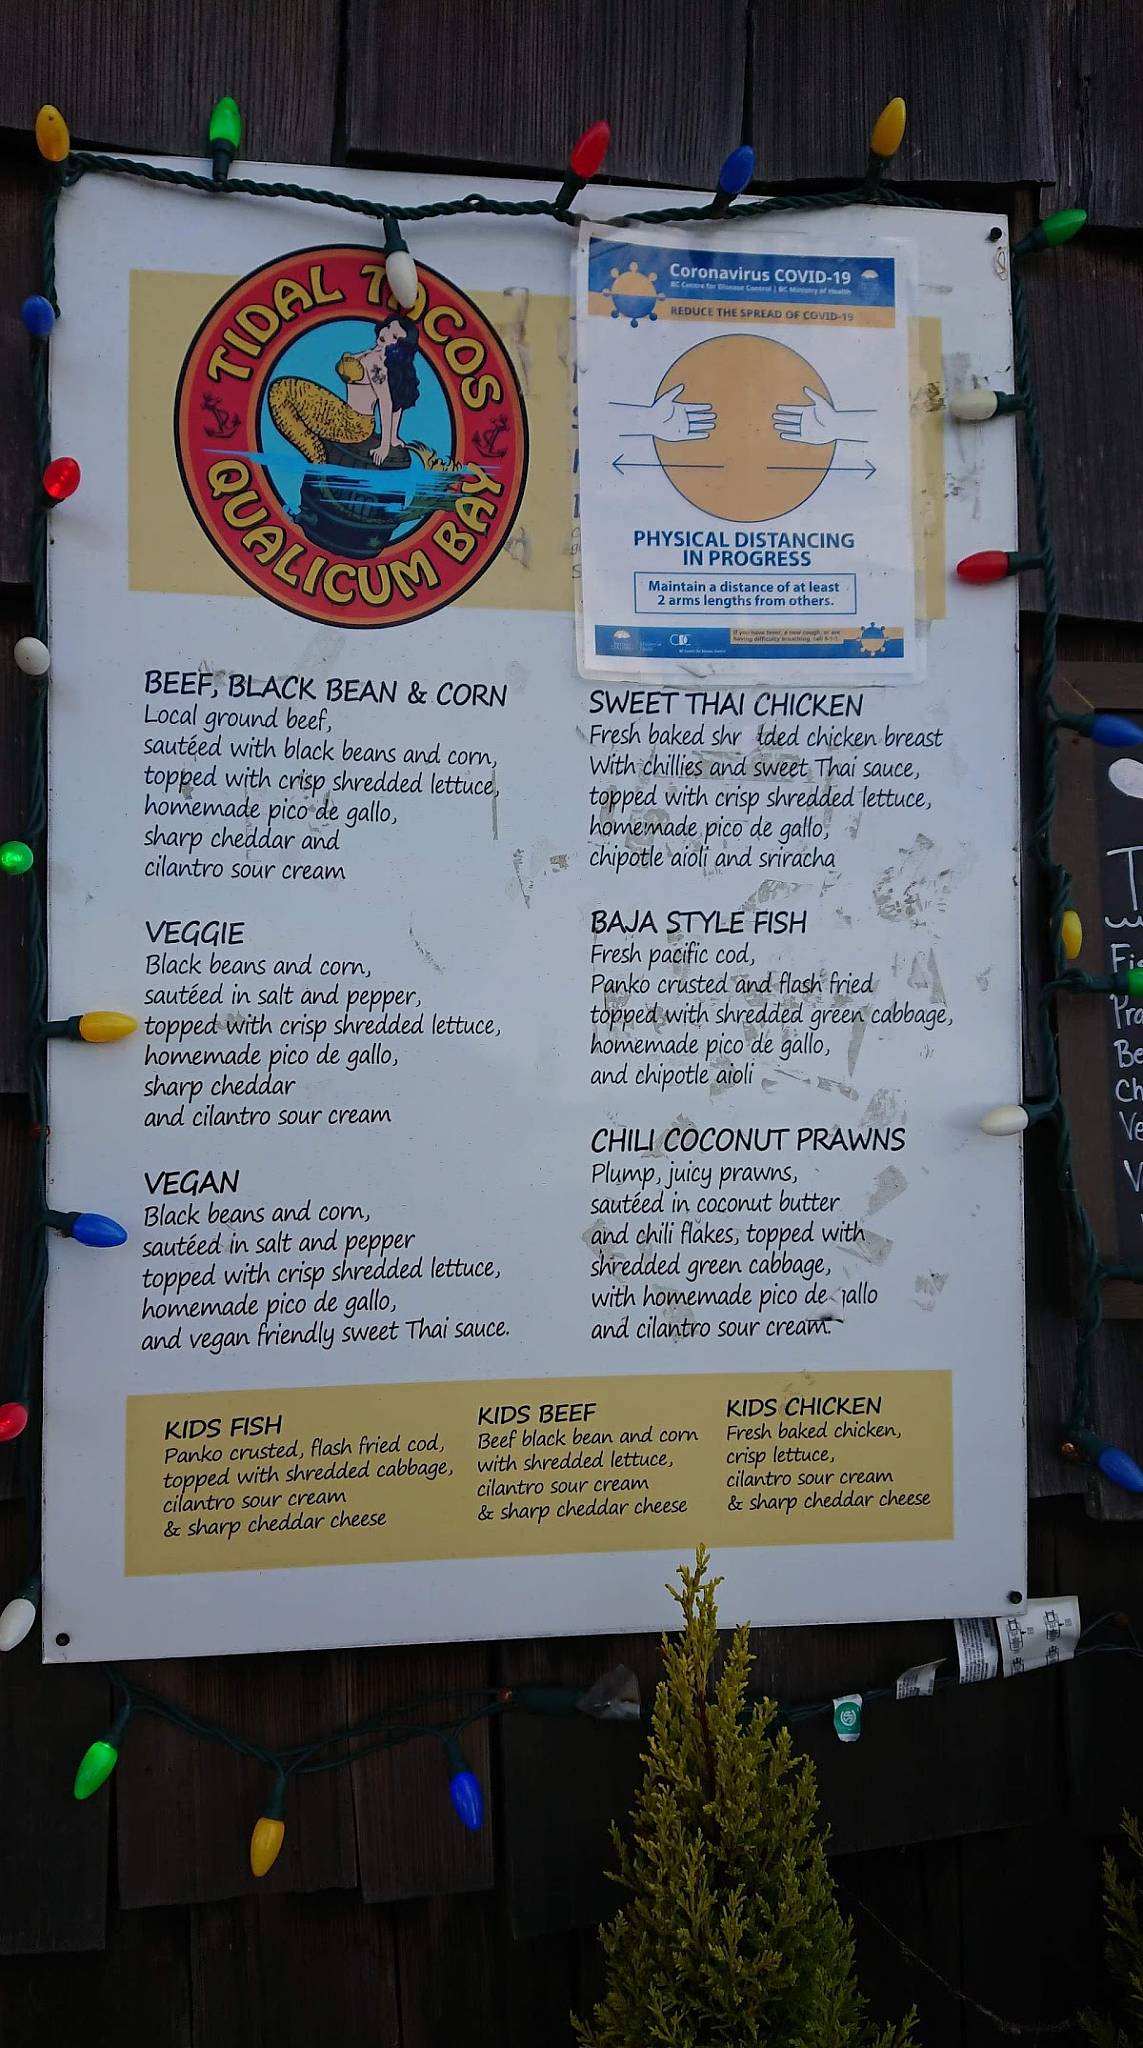 TIDAL TACOS
QUALICUM BAY
Coronavirus COVID-19
BC Centre for Disease Control | BC Ministry of Health
REDUCE THE SPREAD OF COVID-19
PHYSICAL DISTANCING
IN PROGRESS
Maintain a distance of at least
2 arms lengths from others.
If you have fever, a new cough, or are
having difficulty breathing, call 8-1-1.
BEEF, BLACK BEAN & CORN
Local ground beef,
sautéed with black beans and corn,
topped with crisp shredded lettuce,
homemade pico de gallo,
sharp cheddar and
cilantro sour cream
VEGGIE
Black beans and corn,
sautéed in salt and pepper,
topped with crisp shredded lettuce,
homemade pico de gallo,
sharp cheddar
and cilantro sour cream
VEGAN
Black beans and corn,
sautéed in salt and pepper
topped with crisp shredded lettuce,
homemade pico de gallo,
and vegan friendly sweet Thai sauce.
SWEET THAI CHICKEN
Fresh baked shr dded chicken breast
With chillies and sweet Thai sauce,
topped with crisp shredded lettuce,
homemade pico de gallo,
chipotle aioli and sriracha
BAJA STYLE FISH
Fresh pacific cod,
Panko crusted and flash fried
topped with shredded green cabbage,
homemade pico de gallo,
and chipotle aioli
CHILI COCONUT PRAWNS
Plump, juicy prawns,
sautéed in coconut butter
and chili flakes, topped with
shredded green cabbage,
with homemade pico de gallo
and cilantro sour cream.
KIDS FISH
Panko crusted, flash fried cod,
topped with shredded cabbage,
cilantro sour cream
& sharp cheddar cheese
KIDS BEEF
Beef black bean and corn
with shredded lettuce,
cilantro sour cream
& sharp cheddar cheese
KIDS CHICKEN
Fresh baked chicken,
crisp lettuce,
cilantro sour cream
& sharp cheddar cheese